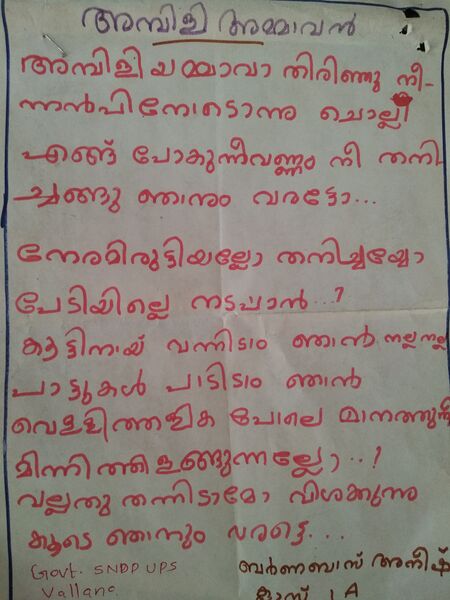 അമ്പിളി അമ്മാവൻ
അമ്പിളിയമ്മാവാ തിരിഞ്ഞു നീ-
ന്നൻപിനോടൊന്നു ചൊല്ലീ
എങ്ങ് പോകുന്നീവണ്ണം നീ തനി-
ച്ചങ്ങു ഞാനും വരട്ടോ...
നേരമിരുട്ടിയല്ലോ തനിച്ചയ്യോ
പേടിയില്ലെ നടപ്പാൻ..?
കൂട്ടിനായ് വന്നിടാം ഞാൻ നല്ല നല്ല
പാട്ടുകൾ പാടിടാം ഞാൻ
വെള്ളിത്തളിക പോലെ മാനത്തുനീ
മിന്നിത്തിളങ്ങുന്നല്ലോ..!
വല്ലതു തന്നിടാമോ വിശക്കുന്നു
കൂടെ ഞാനും വരട്ടെ...
Govt. SNDP UPS
ബർണബാസ് അനീഷ്
Vallana
ക്ലാസ് 1 A